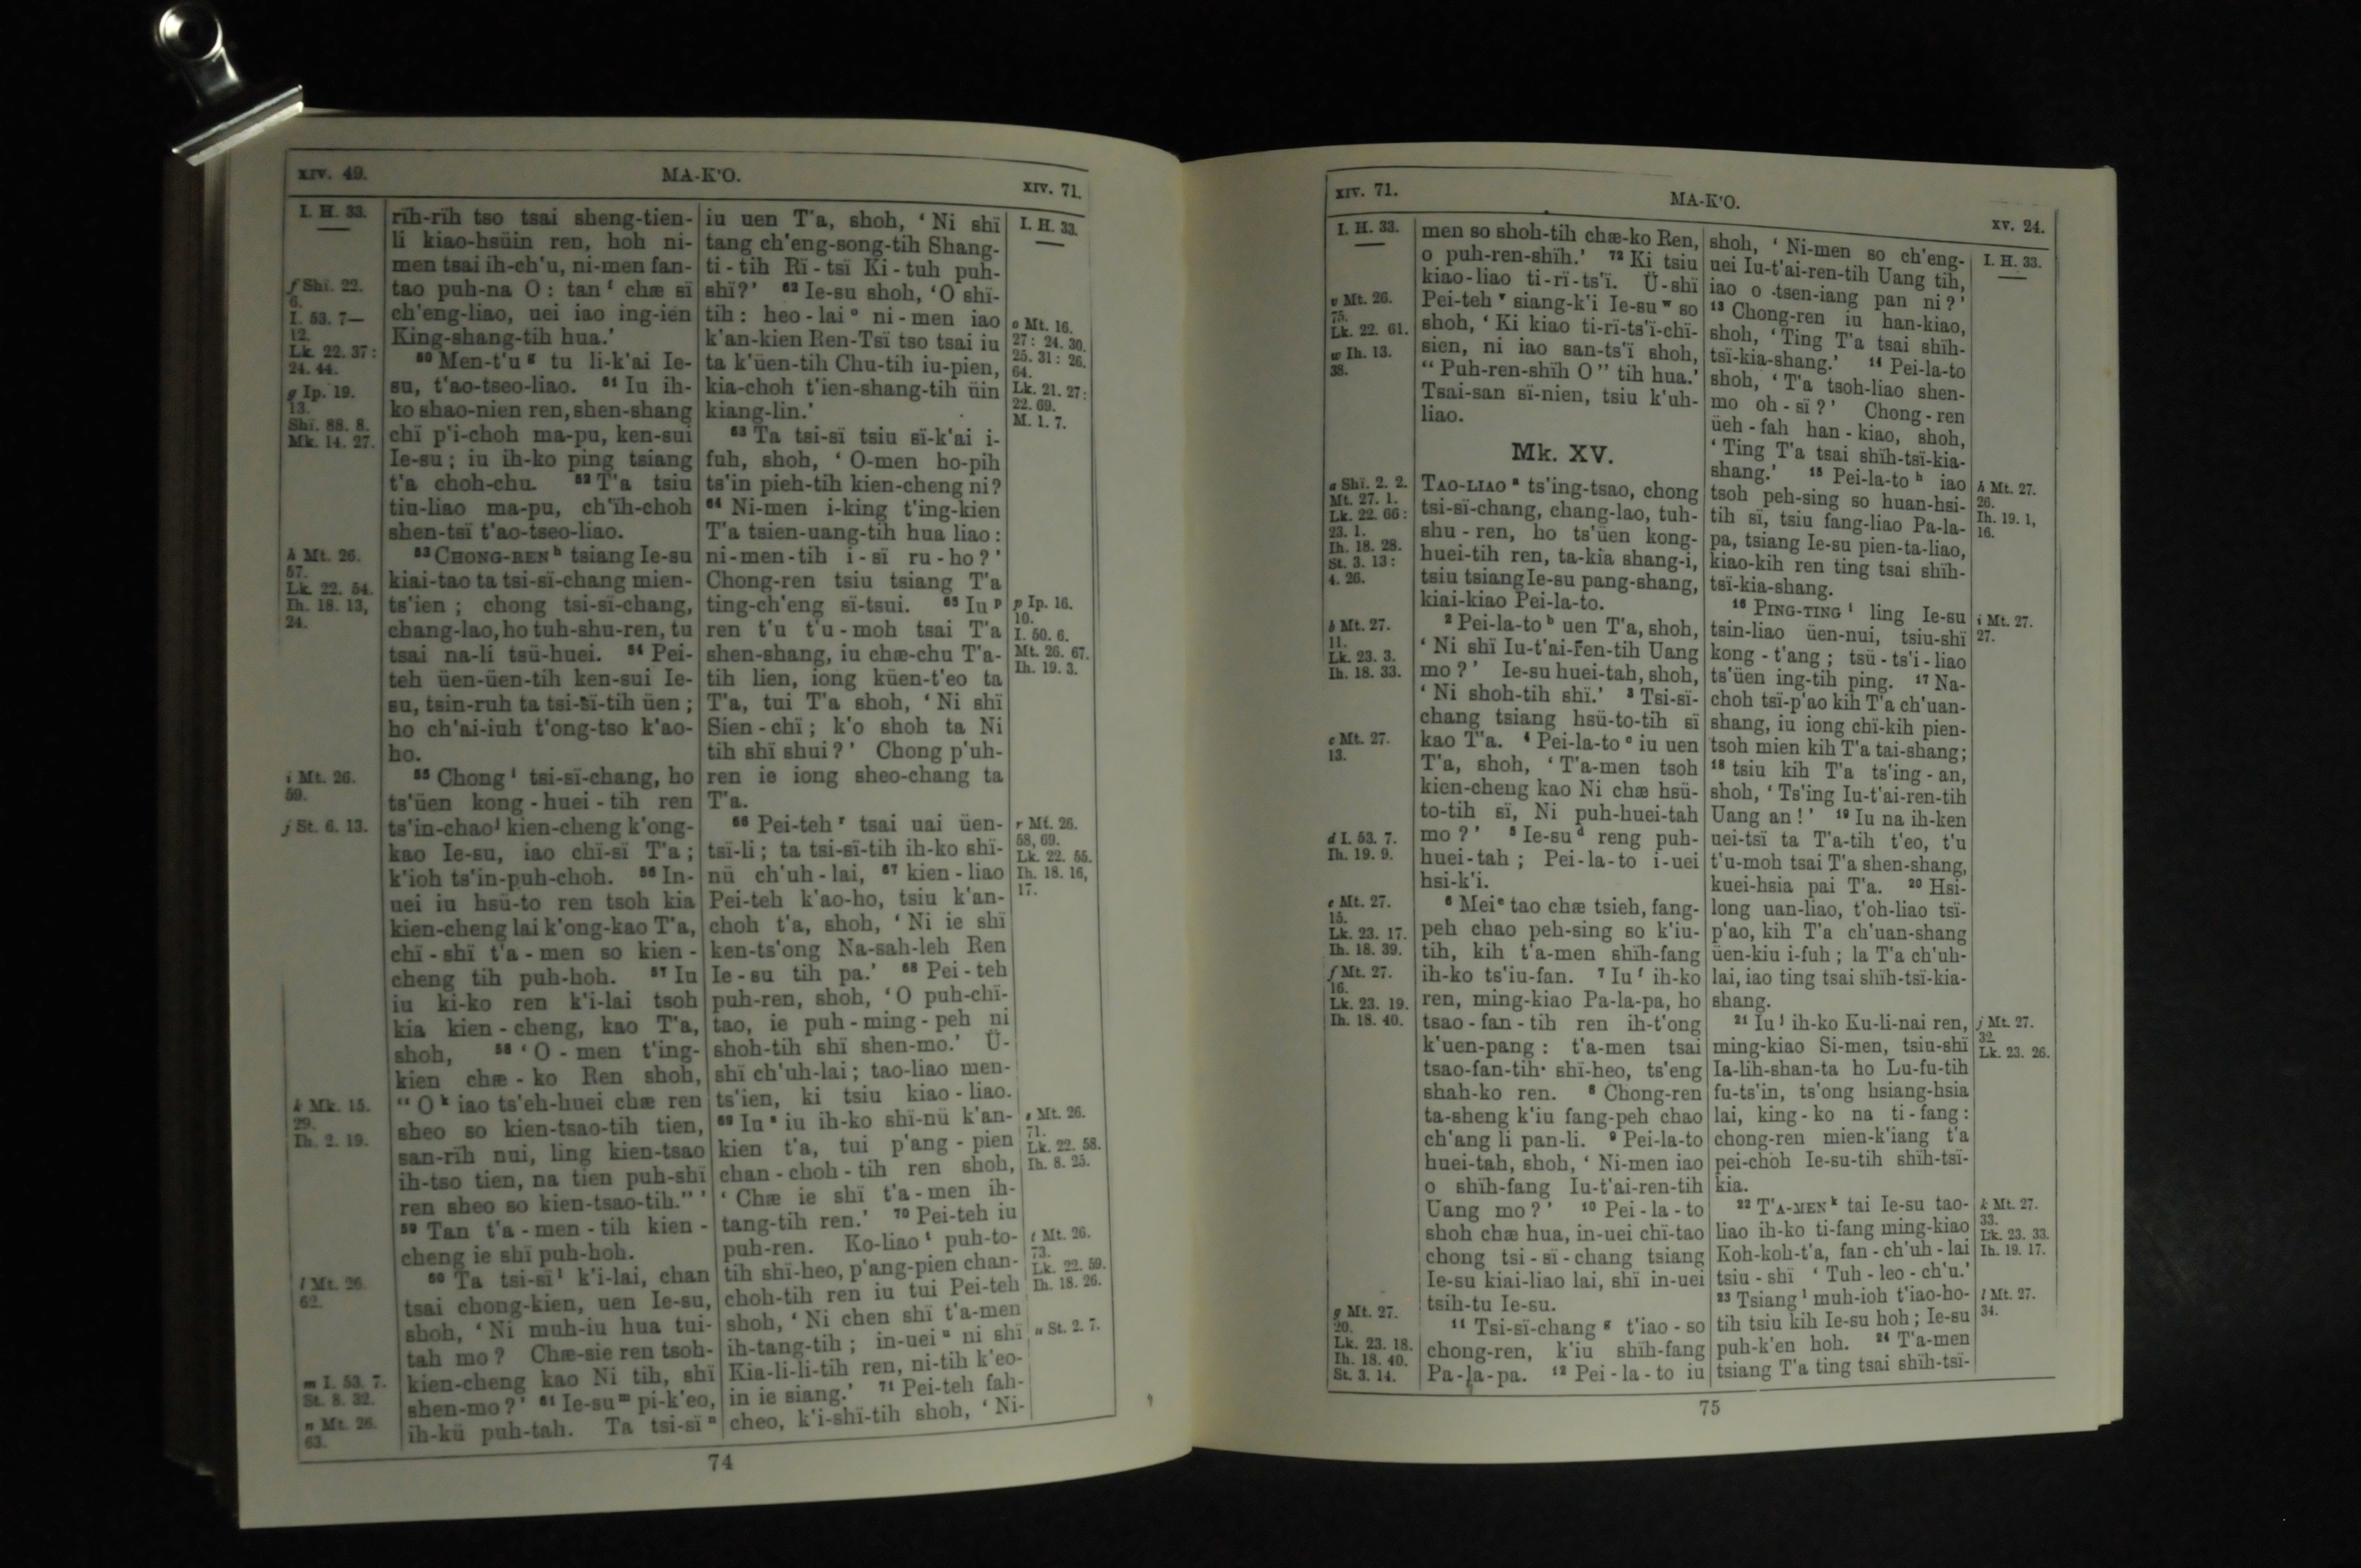 XIV. 49.
MA-K'O.
XIV. 71.
I. H. 33.
f Shï. 22.
6.
I. 53. 7—
12.
Lk. 22. 37:
24. 44.
g Ip. 19.
13.
Shï. 88. 8.
Mk. 14. 27.
h Mt. 26.
57.
Lk. 22. 54.
Ih. 18. 13,
24.
i Mt. 26.
59.
j St. 6. 13.
k Mk. 15.
29.
Ih. 2. 19.
l Mt. 26.
62.
m I. 53. 7.
St. 8. 32.
n Mt. 26.
63.
rïh-rïh tso tsai sheng-tien-
li kiao-hsüin ren, hoh ni-
men tsai ih-ch'u, ni-men fan-
tao puh-na O: tan f chæ sï
ch'eng-liao, uei iao ing-ien
King-shang-tih hua.'
50 Men-t'u g tu li-k'ai Ie-
su, t'ao-tseo-liao. 51 Iu ih-
ko shao-nien ren, shen-shang
chï p'i-choh ma-pu, ken-sui
Ie-su; iu ih-ko ping tsiang
t'a choh-chu. 52 T'a tsiu
tiu-liao ma-pu, ch'ïh-choh
shen-tsï t'ao-tseo-liao.
53 CHONG-REN h tsiang Ie-su
kiai-tao ta tsi-sï-chang mien-
ts'ien; chong tsi-sï-chang,
chang-lao, ho tuh-shu-ren, tu
tsai na-li tsü-huei. 54 Pei-
teh üen-üen-tih ken-sui Ie-
su, tsin-ruh ta tsi-sï-tih üen;
ho ch'ai-iuh t'ong-tso k'ao-
ho.
55 Chong i tsi-sï-chang, ho
ts'üen kong-huei-tih ren
ts'in-chao j kien-cheng k'ong-
kao Ie-su, iao chï-sï T'a;
k'ioh ts'in-puh-choh. 56 In-
uei iu hsü-to ren tsoh kia
kien-cheng lai k'ong-kao T'a,
chï-shï t'a-men so kien-
cheng tih puh-hoh. 57 Iu
iu ki-ko ren k'i-lai tsoh
kia kien-cheng, kao T'a,
shoh, 58 'O-men t'ing-
kien chæ-ko Ren shoh,
"O k iao ts'eh-huei chæ ren
sheo so kien-tsao-tih tien,
san-rïh nui, ling kien-tsao
ih-tso tien, na tien puh-shï
ren sheo so kien-tsao-tih."'
59 Tan t'a-men-tih kien-
cheng ie shï puh-hoh.
60 Ta tsi-sï l k'i-lai, chan
tsai chong-kien, uen Ie-su,
shoh, 'Ni muh-iu hua tui-
tah mo? Chæ-sie ren tsoh-
kien-cheng kao Ni tih, shï
shen-mo?' 61 Ie-su m pi-k'eo,
ih-kü puh-tah. Ta tsi-sï n
iu uen T'a, shoh, 'Ni shï
tang ch'eng-song-tih Shang-
ti-tih Rï-tsï Ki-tuh puh-
shï?' 62 Ie-su shoh, 'O shï-
tih: heo-lai o ni-men iao
k'an-kien Ren-Tsï tso tsai iu
ta k'üen-tih Chu-tih iu-pien,
kia-choh t'ien-shang-tih üin
kiang-lin.'
63 Ta tsi-sï tsiu sï-k'ai i-
fuh, shoh, 'O-men ho-pih
ts'in pieh-tih kien-cheng ni?
64 Ni-men i-king t'ing-kien
T'a tsien-uang-tih hua liao:
ni-men-tih i-sï ru-ho?'
Chong-ren tsiu tsiang T'a
ting-ch'eng sï-tsui. 65 Iu p
ren t'u t'u-moh tsai T'a
shen-shang, iu chæ-chu T'a-
tih lien, iong küen-t'eo ta
T'a, tui T'a shoh, 'Ni shï
Sien-chï; k'o shoh ta Ni
tih shï shui?' Chong p'uh-
ren ie iong sheo-chang ta
T'a.
66 Pei-teh r tsai uai üen-
tsï-li; ta tsi-sï-tih ih-ko shï-
nü ch'uh-lai, 67 kien-liao
Pei-teh k'ao-ho, tsiu k'an-
choh t'a, shoh, 'Ni ie shï
ken-ts'ong Na-sah-leh Ren
Ie-su tih pa.' 68 Pei-teh
puh-ren, shoh, 'O puh-chï-
tao, ie puh-ming-peh ni
shoh-tih shï shen-mo.' Ü-
shï ch'uh-lai; tao-liao men-
ts'ien, ki tsiu kiao-liao.
69 Iu s iu ih-ko shï-nü k'an-
kien t'a, tui p'ang-pien
chan-choh-tih ren shoh,
'Chæ ie shï t'a-men ih-
tang-tih ren.' 70 Pei-teh iu
puh-ren. Ko-liao t puh-to-
tih shï-heo, p'ang-pien chan-
choh-tih ren iu tui Pei-teh
shoh, 'Ni chen shï t'a-men
ih-tang-tih; in-uei u ni shï
Kia-li-li-tih ren, ni-tih k'eo-
in ie siang.' 71 Pei-teh fah-
cheo, k'i-shï-tih shoh, 'Ni-
I. H. 33.
o Mt. 16.
27: 24. 30.
25. 31: 26.
64.
Lk. 21. 27:
22. 69.
M. 1. 7.
p Ip. 16.
10.
I. 50. 6.
Mt. 26. 67.
Ih. 19. 3.
r Mt. 26.
58, 69.
Lk. 22. 55.
Ih. 18. 16,
17.
s Mt. 26.
71.
Lk. 22. 58.
Ih. 8. 25.
t Mt. 26.
73.
Lk. 22. 59.
Ih. 18. 26.
u St. 2. 7.
74
XIV. 71.
MA-K'O.
XV. 24.
I. H. 33.
v Mt. 26.
75.
Lk. 22. 61.
w Ih. 13.
38.
a Shï. 2. 2.
Mt. 27. 1.
Lk. 22. 66:
23. 1.
Ih. 18. 28.
St. 3. 13:
4. 26.
b Mt. 27.
11.
Lk. 23. 3.
Ih. 18. 33.
c Mt. 27.
13.
d I. 53. 7.
Ih. 19. 9.
e Mt. 27.
15.
Lk. 23. 17.
Ih. 18. 39.
f Mt. 27.
16.
Lk. 23. 19.
Ih. 18. 40.
g Mt. 27.
20.
Lk. 23. 18.
Ih. 18. 40.
St. 3. 14.
men so shoh-tih chæ-ko Ren,
o puh-ren-shïh.' 72 Ki tsiu
kiao-liao ti-rï-ts'ï. Ü-shï
Pei-teh v siang-k'i Ie-su w so
shoh, 'Ki kiao ti-rï-ts'ï-chï-
sien, ni iao san-ts'ï shoh,
"Puh-ren-shïh O" tih hua.'
Tsai-san sï-nien, tsiu k'uh-
liao.
Mk. XV.
TAO-LIAO a ts'ing-tsao, chong
tsi-sï-chang, chang-lao, tuh-
shu-ren, ho ts'üen kong-
huei-tih ren, ta-kia shang-i,
tsiu tsiang Ie-su pang-shang,
kiai-kiao Pei-la-to.
2 Pei-la-to b uen T'a, shoh,
'Ni shï Iu-t'ai-ren-tih Uang
mo?' Ie-su huei-tah, shoh,
'Ni shoh-tih shï.' 3 Tsi-sï-
chang tsiang hsü-to-tih sï
kao T'a. 4 Pei-la-to c iu uen
T'a, shoh, 'T'a-men tsoh
kien-cheng kao Ni chæ hsü-
to-tih sï, Ni puh-huei-tah
mo?' 5 Ie-su d reng puh-
huei-tah; Pei-la-to i-uei
hsi-k'i.
6 Mei e tao chæ tsieh, fang-
peh chao peh-sing so k'iu-
tih, kih t'a-men shïh-fang
ih-ko ts'iu-fan. 7 Iu f ih-ko
ren, ming-kiao Pa-la-pa, ho
tsao-fan-tih ren ih-t'ong
k'uen-pang: t'a-men tsai
tsao-fan-tih shï-heo, ts'eng
shah-ko ren. 8 Chong-ren
ta-sheng k'iu fang-peh chao
ch'ang li pan-li. 9 Pei-la-to
huei-tah, shoh, 'Ni-men iao
o shïh-fang Iu-t'ai-ren-tih
Uang mo?' 10 Pei-la-to
shoh chæ hua, in-uei chï-tao
chong tsi-sï-chang tsiang
Ie-su kiai-liao lai, shï in-uei
tsih-tu Ie-su.
11 Tsi-sï-chang g t'iao-so
chong-ren, k'iu shïh-fang
Pa-la-pa. 12 Pei-la-to iu
shoh, 'Ni-men so ch'eng-
uei Iu-t'ai-ren-tih Uang tih,
iao o tsen-iang pan ni?'
13 Chong-ren iu han-kiao,
shoh, 'Ting T'a tsai shïh-
tsï-kia-shang.' 14 Pei-la-to
shoh, 'T'a tsoh-liao shen-
mo oh-sï?' Chong-ren
üeh-fah han-kiao, shoh,
'Ting T'a tsai shïh-tsï-kia-
shang.' 15 Pei-la-to h iao
tsoh peh-sing so huan-hsi-
tih sï, tsiu fang-liao Pa-la-
pa, tsiang Ie-su pien-ta-liao,
kiao-kih ren ting tsai shïh-
tsï-kia-shang.
16 PING-TING i ling Ie-su
tsin-liao üen-nui, tsiu-shï
kong-t'ang; tsü-ts'i-liao
ts'üen ing-tih ping. 17 Na-
choh tsï-p'ao kih T'a ch'uan-
shang, iu iong chï-kih pien-
tsoh mien kih T'a tai-shang;
18 tsiu kih T'a ts'ing-an,
shoh, 'Ts'ing Iu-t'ai-ren-tih
Uang an!' 19 Iu na ih-ken
uei-tsï ta T'a-tih t'eo, t'u
t'u-moh tsai T'a shen-shang,
kuei-hsia pai T'a. 20 Hsi-
long uan-liao, t'oh-liao tsï-
p'ao, kih T'a ch'uan-shang
üen-kiu i-fuh; la T'a ch'uh-
lai, iao ting tsai shïh-tsï-kia-
shang.
21 Iu j ih-ko Ku-li-nai ren,
ming-kiao Si-men, tsiu-shï
Ia-lih-shan-ta ho Lu-fu-tih
fu-ts'in, ts'ong hsiang-hsia
lai, king-ko na ti-fang:
chong-ren mien-k'iang t'a
pei-choh Ie-su-tih shïh-tsï-
kia.
22 T'A-MEN k tai Ie-su tao-
liao ih-ko ti-fang ming-kiao
Koh-koh-t'a, fan-ch'uh-lai
tsiu-shï 'Tuh-leo-ch'u.'
23 Tsiang l muh-ioh t'iao-ho-
tih tsiu kih Ie-su hoh; Ie-su
puh-k'en hoh. 24 T'a-men
tsiang T'a ting tsai shïh-tsï-
I. H. 33.
h Mt. 27.
26.
Ih. 19. 1,
16.
i Mt. 27.
27.
j Mt. 27.
32.
Lk. 23. 26.
k Mt. 27.
33.
Lk. 23. 33.
Ih. 19. 17.
l Mt. 27.
34.
75